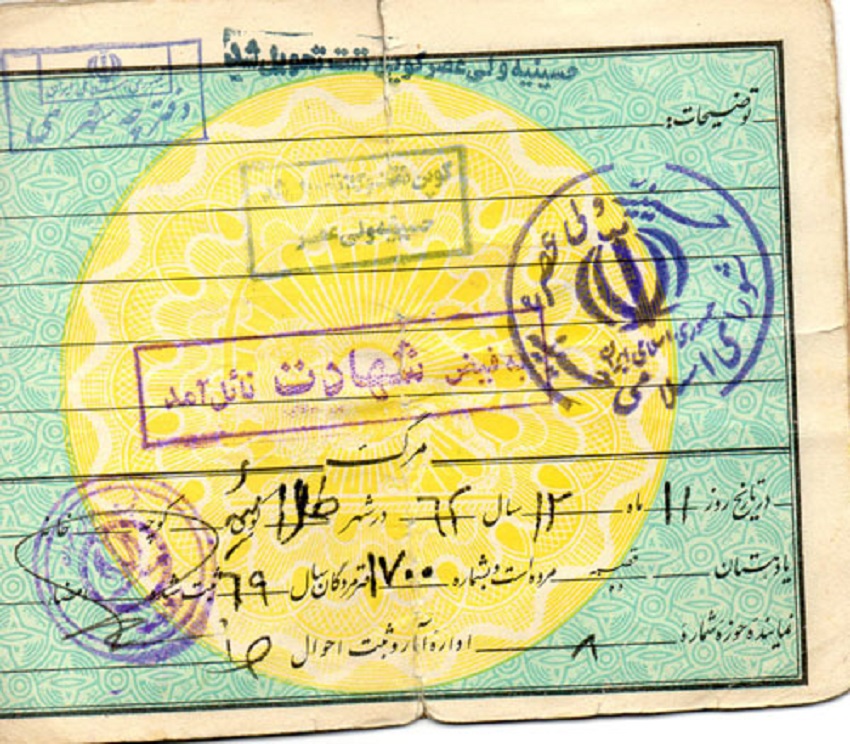 حسینیه ولی عصر کوپن نفت تحویل شد
جمهوری اسلامی ایران
دفترچه شهری
توضیحات:
کوپن
حسینیه ولی عصر
ولی عصر
شورای اسلامی
جمهوری اسلامی ایران
به فیض شهادت نائل آمد
مرگ
در تاریخ روز ۱۱ ماه ۱۲ سال ۶۲ در شهر کوچه خانه
یا دهستان قصبه ده مرده است و بشماره ۱۷۰۰ دفتر مردگان سال ۶۹ ثبت شد امضاء
نماینده حوزه شماره ۸ اداره آمار و ثبت احوال